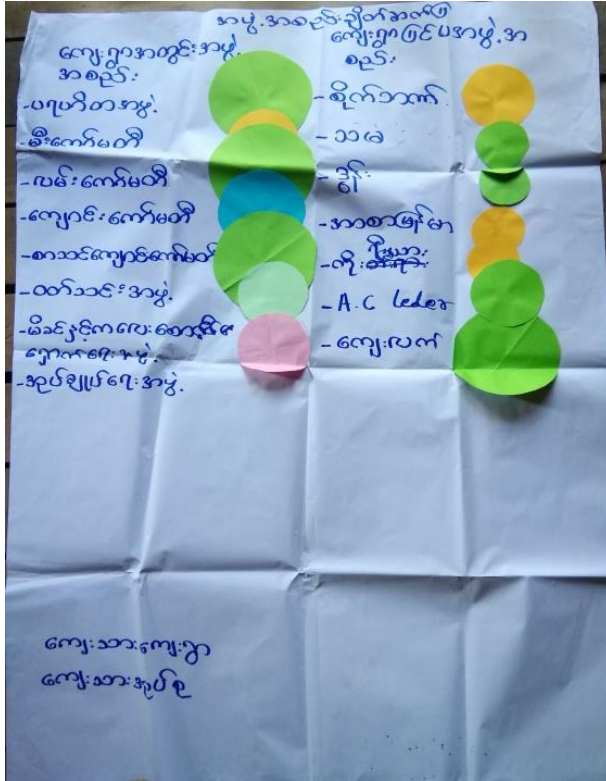 အဖွဲ့အစည်းချိတ်ဆက်ပြ
ကျေးရွာအတွင်းအဖွဲ့
အစည်း
-ပရဟိတအဖွဲ့
-မီးကော်မတီ
-လမ်းကော်မတီ
-ကျောင်းကော်မတီ
-စာသင်ကျောင်းကော်မတီ
-ဝတ်သင်းအဖွဲ့
-မိခင်နှင့်ကလေးစောင့်
ရှောက်ရေးအဖွဲ့
-အုပ်ချုပ်ရေးအဖွဲ့
ကျေးရွာပြင်ပအဖွဲ့အ
စည်း
-စိုက်ဘဏ်
-သမ
-ဒွန်း
-အာစာမြန်မာ
-ကိုးရီးယား
-A.C leder
-ကျေးလက်
ကျေးသားကျေးရွာ
ကျေးသားအုပ်စု